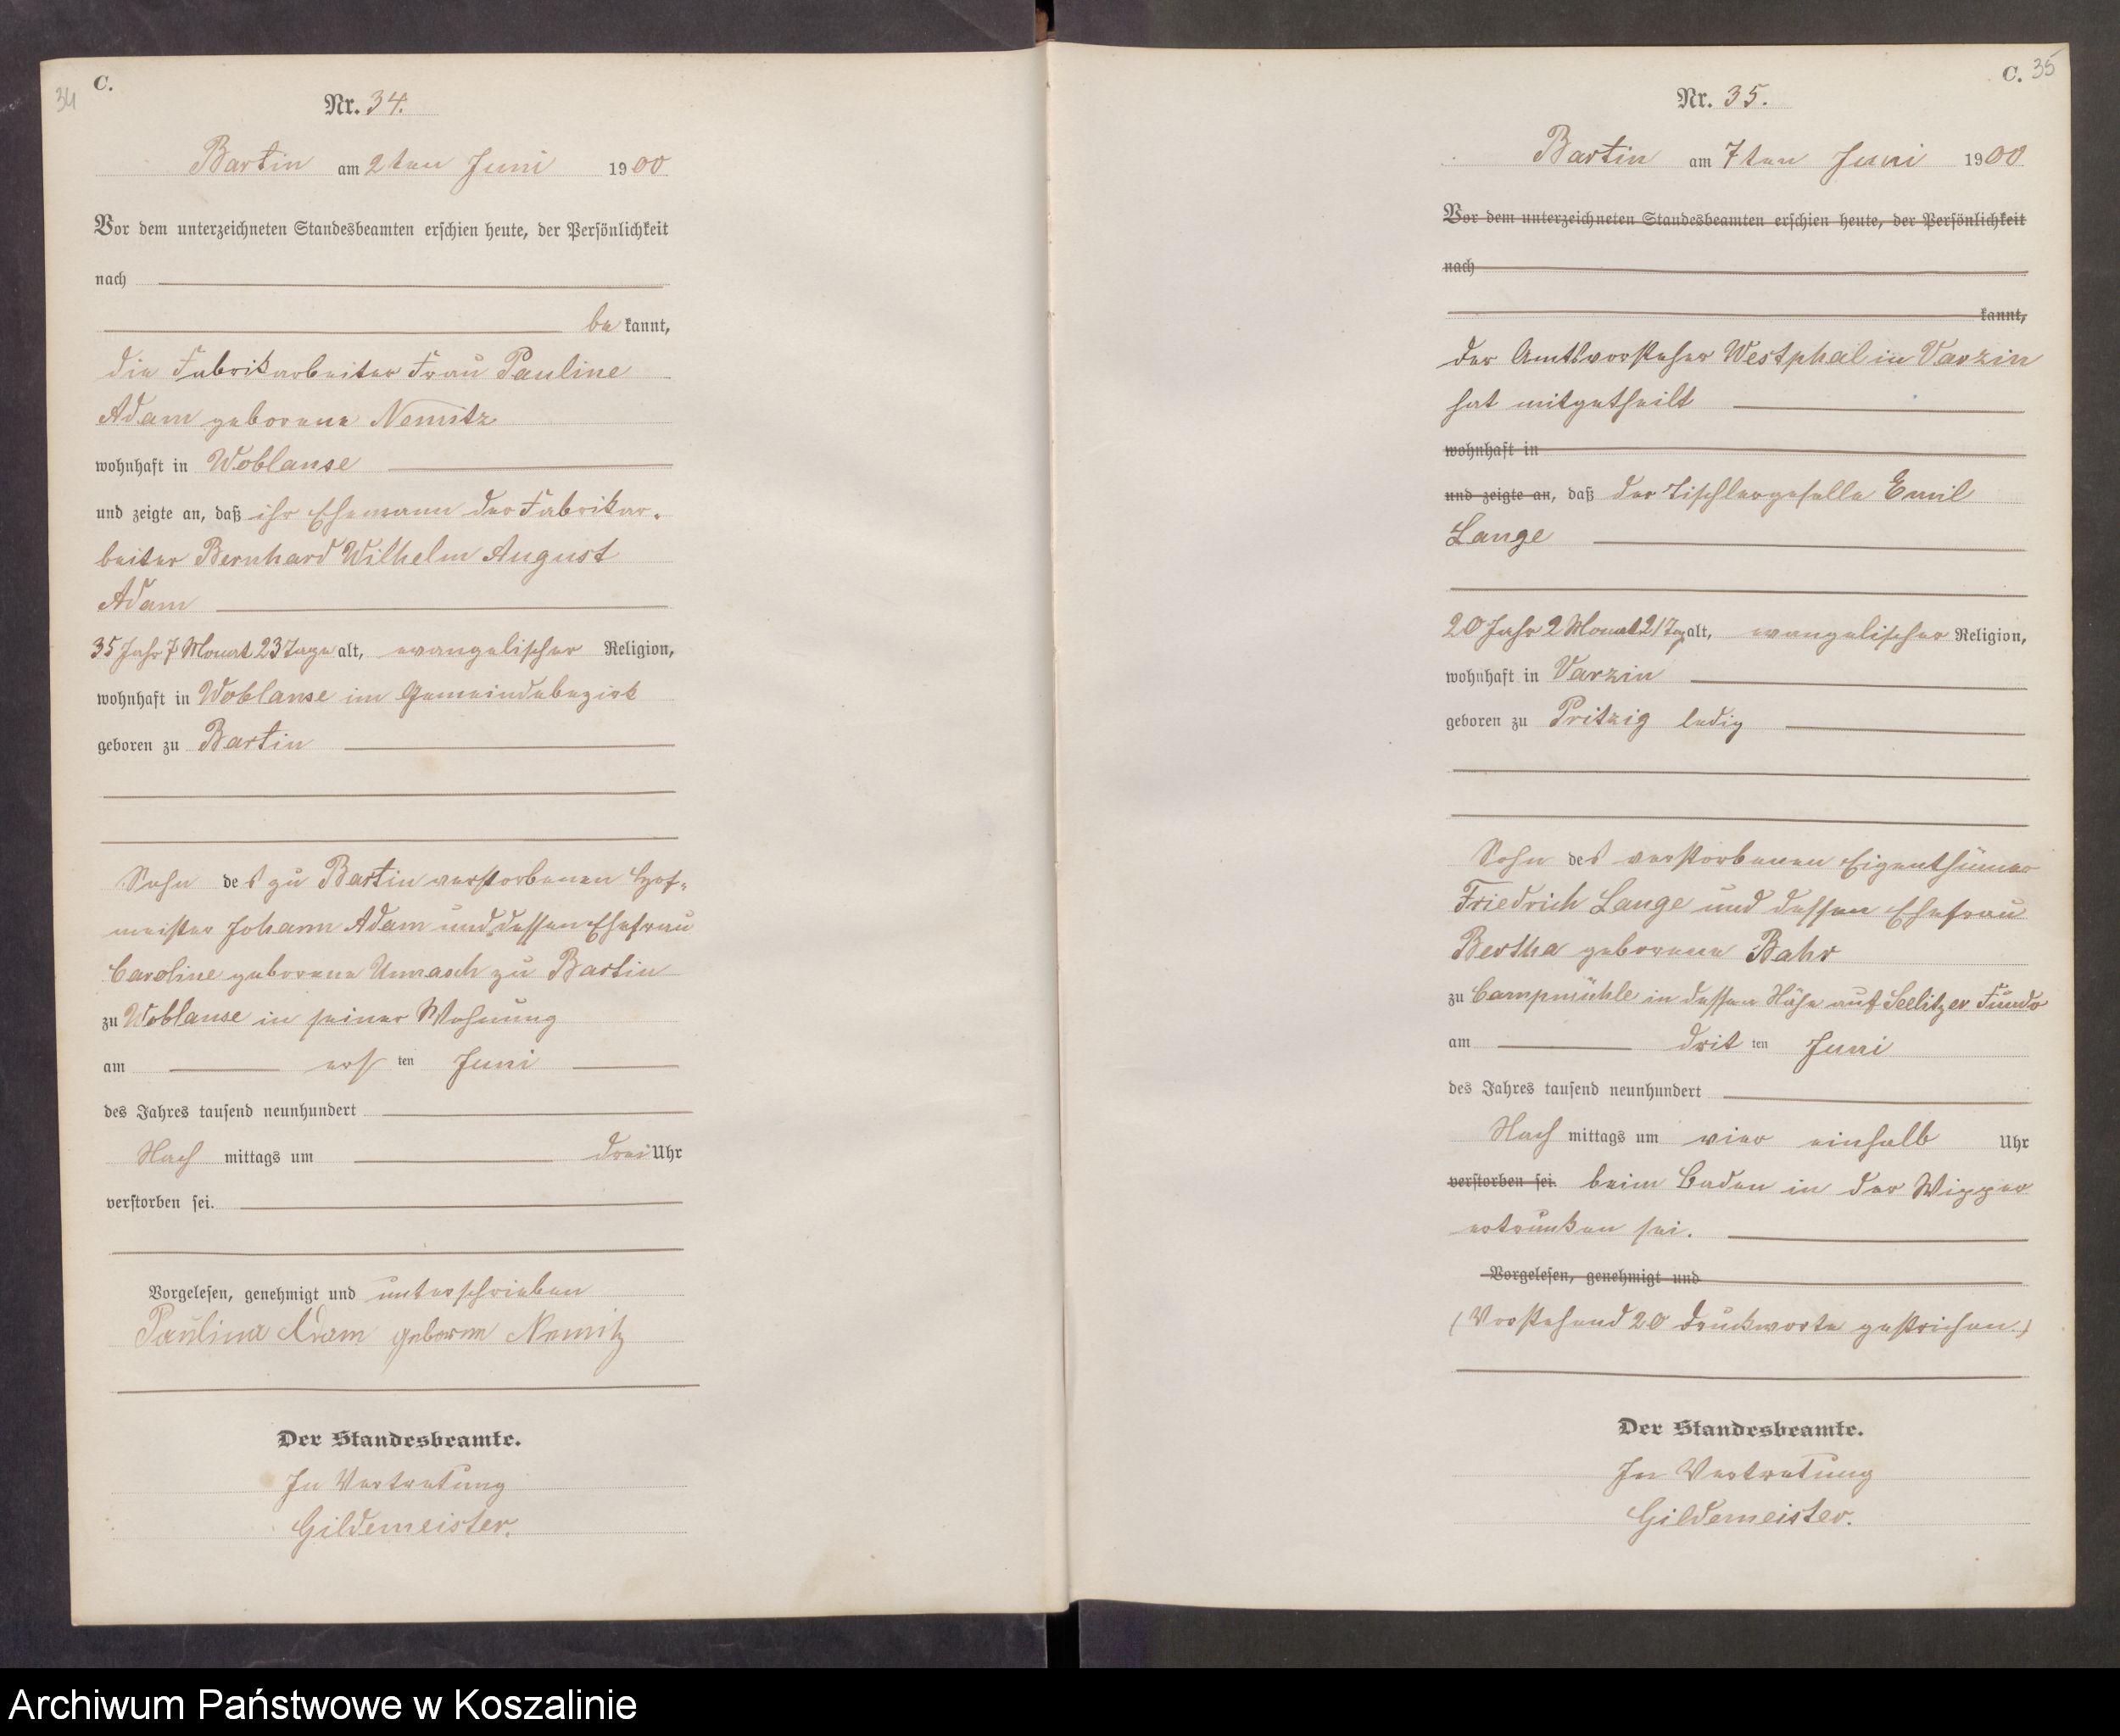 34
C.
Nr. 34.
Bartin am 2ten Juni 1900
Vor dem unterzeichneten Standesbeamten erschien heute, der Persönlichkeit
nach
be kannt,
die Fabrikarbeiter Frau Pauline
Adam geborene Nemitz
wohnhaft in Woblanse
und zeigte an, daß ihr Ehemann der Fabrikar-
beiter Bernhard Wilhelm August
Adam
35 Jahr 7 Monat 23 Tage alt, evangelischer Religion,
wohnhaft in Woblanse im Gemeindebezirk
geboren zu Bartin
Sohn des zu Bartin verstorbenen Hof-
meister Johann Adam und dessen Ehefrau
Caroline geborene Unrasch zu Bartin
zu Woblanse in seiner Wohnung
am ersten Juni
des Jahres tausend neunhundert
Nach mittags um drei Uhr
verstorben sei.
Vorgelesen, genehmigt und unterschrieben
Paulina Adam geborne Nemitz
Der Standesbeamte.
In Vertretung
Gildemeister.
C. 35
Nr. 35.
Bartin am 7ten Juni 1900
Vor dem unterzeichneten Standesbeamten erschien heute, der Persönlichkeit
nach
kannt,
der Amtsvorsteher Westphal in Varzin
hat mitgetheilt
wohnhaft in
und zeigte an, daß der Tischlergeselle Emil
Lange
20 Jahr 2 Monat 21 Tag alt, evangelischer Religion,
wohnhaft in Varzin
geboren zu Pritzig ledig
Sohn des verstorbenen Eigenthümer
Friedrich Lange und dessen Ehefrau
Bertha geborene Bahr
zu Campmühle in dessen Nähe auf Seelitzer Fundo
am dritten Juni
des Jahres tausend neunhundert
Nach mittags um vier einhalb Uhr
verstorben sei. beim Baden in der Wipper
ertrunken sei.
Vorgelesen, genehmigt und
(Vorstehend 20 Druckworte gestrichen.)
Der Standesbeamte.
In Vertretung
Gildemeister.
Archiwum Państwowe w Koszalinie